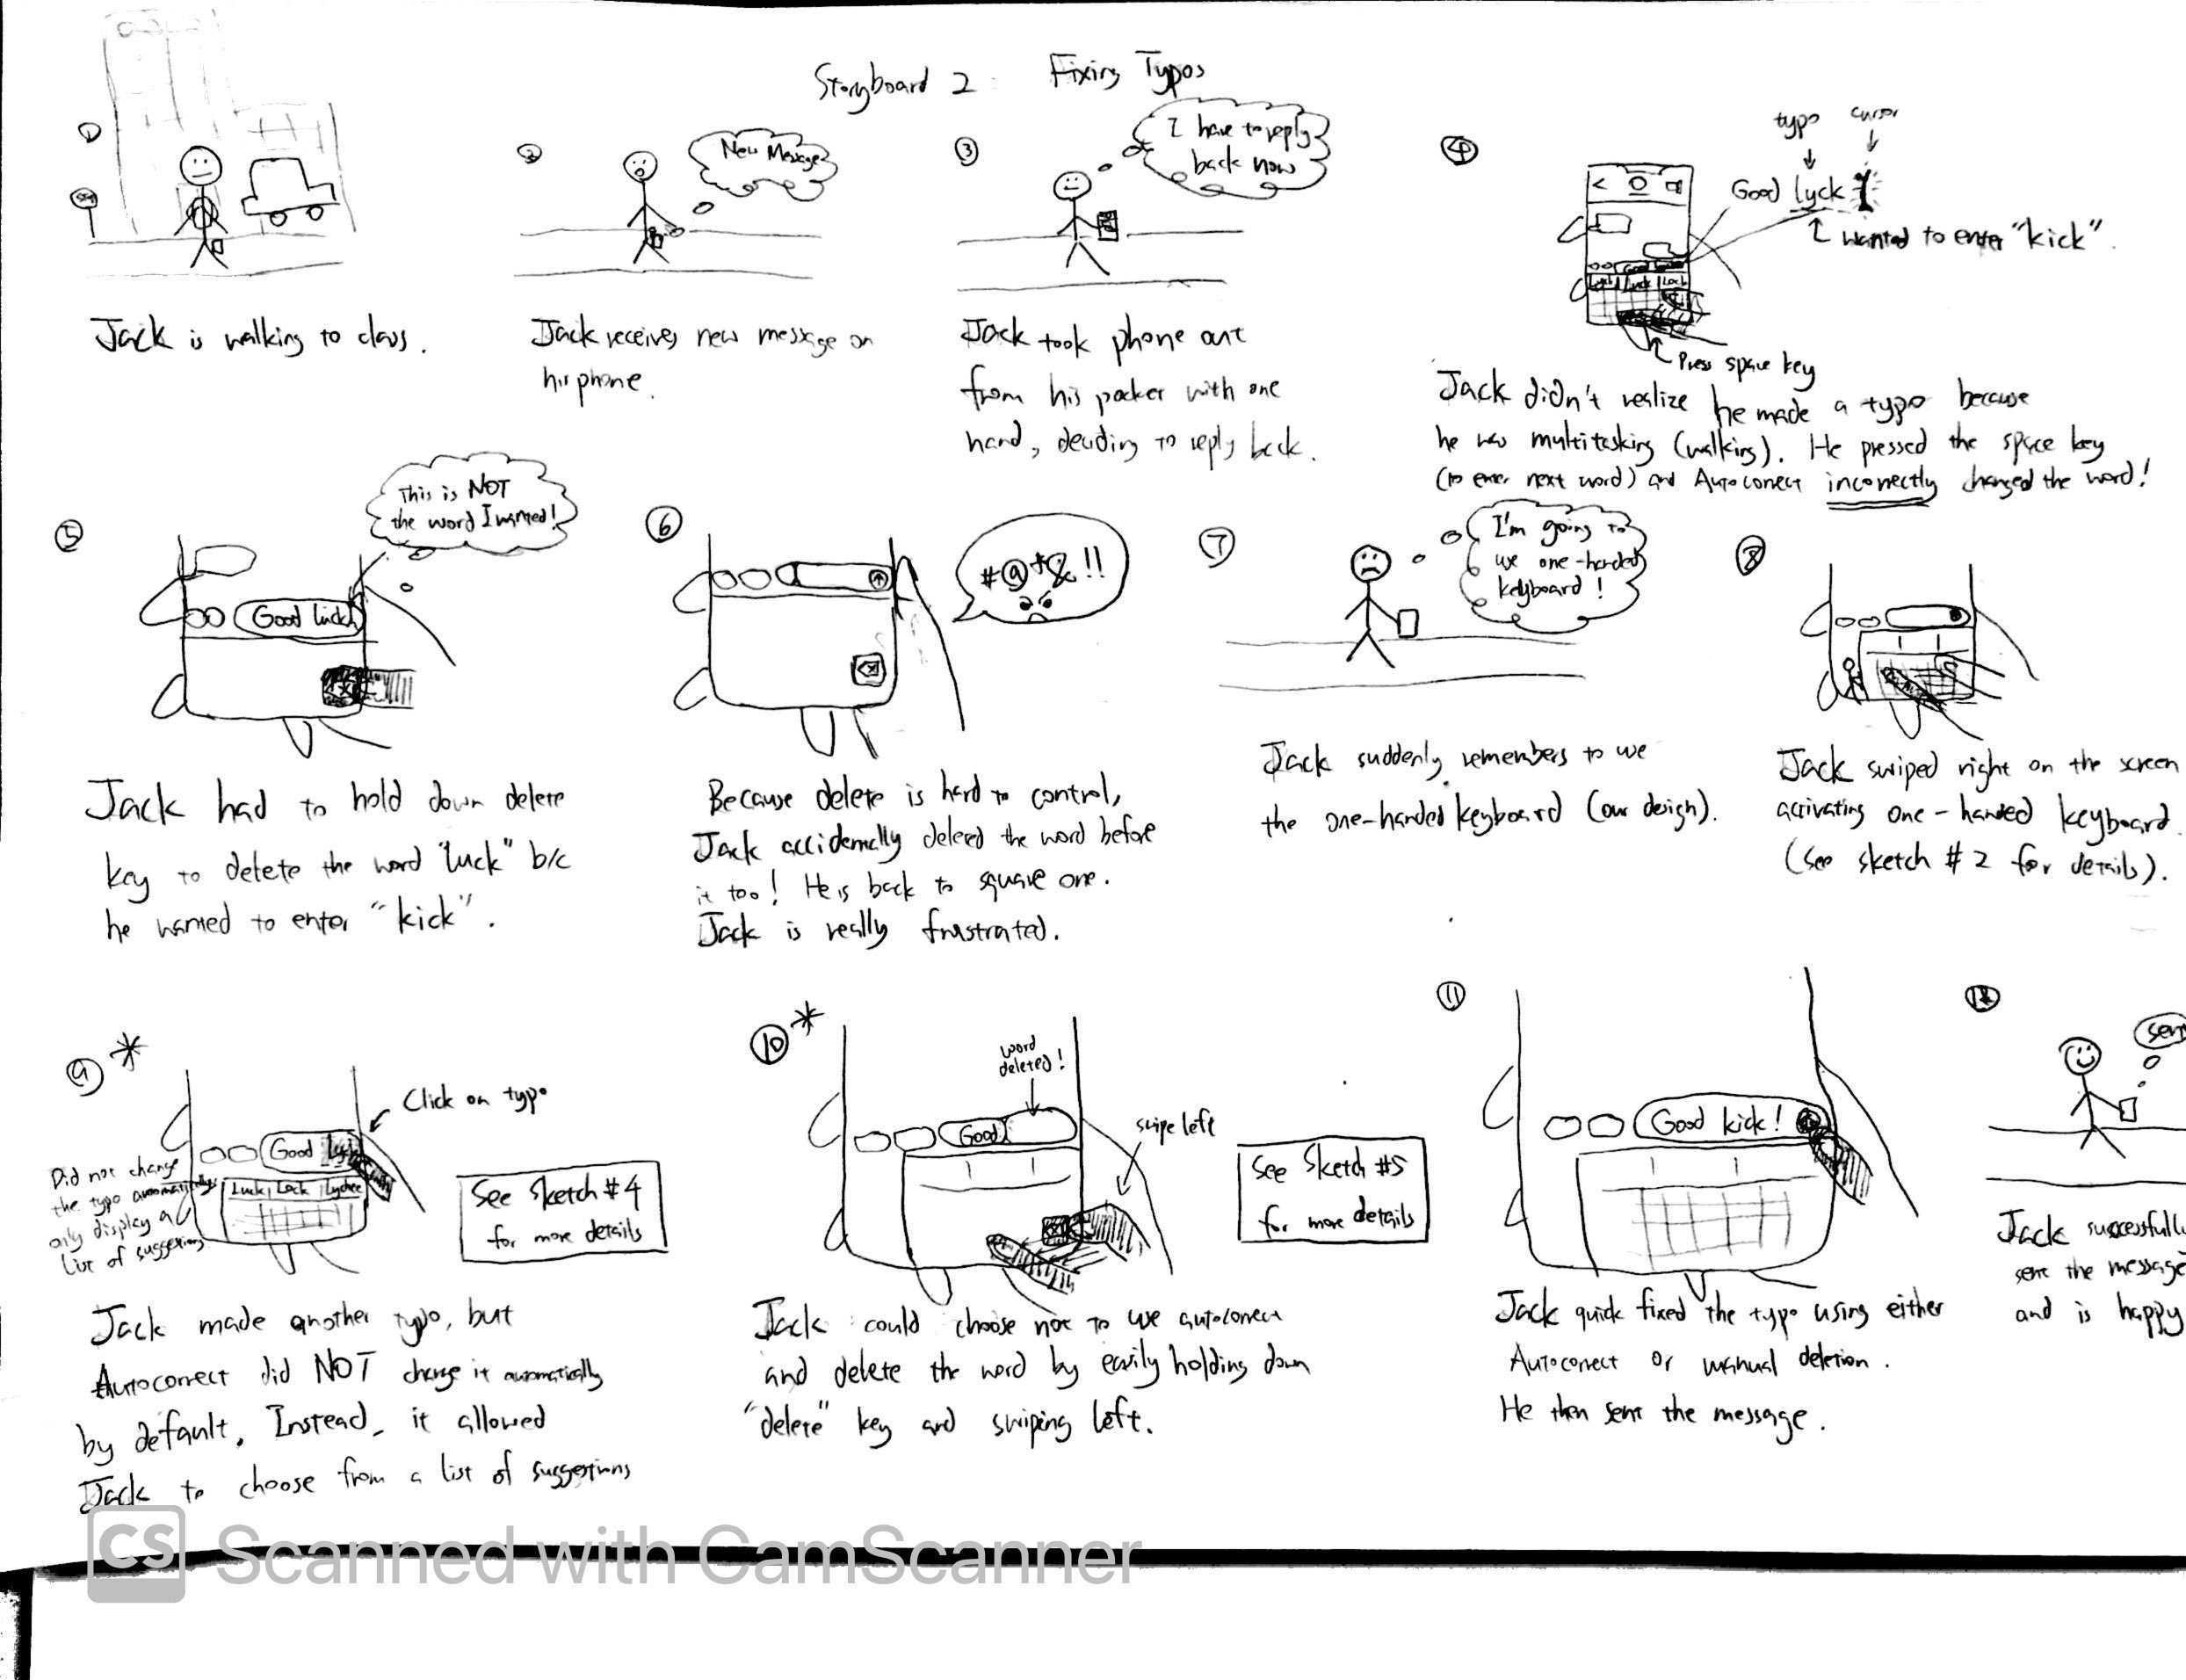 Storyboard 2: Fixing Typos
①
Jack is walking to class.
②
New Message
Jack receives new message on
his phone.
③
I have to reply
back now
Jack took phone out
from his pocket with one
hand, deciding to reply back.
④
typo cursor
Good lyck
wanted to enter "kick".
Luck Lock
Press space key
Jack didn't realize he made a typo because
he was multitasking (walking). He pressed the space key
(to enter next word) and Autocorrect incorrectly changed the word!
⑤
This is NOT
the word I wanted!
Good luck
Jack had to hold down delete
key to delete the word "luck" b/c
he wanted to enter "kick".
⑥
#@*&!!
Because delete is hard to control,
Jack accidentally deleted the word before
it too! He is back to square one.
Jack is really frustrated.
⑦
I'm going to
use one-handed
keyboard!
Jack suddenly remembers to use
the one-handed keyboard (our design).
⑧
Jack swiped right on the screen
activating one-handed keyboard.
(See sketch #2 for details).
⑨ *
Click on typo
Good lyck
Luck Lock Lychee
Did not change
the typo automatically
only display a
list of suggestions
See Sketch #4
for more details
Jack made another typo, but
Autocorrect did NOT change it automatically
by default. Instead, it allowed
Jack to choose from a list of suggestions
⑩ *
word
deleted!
Good
swipe left
See Sketch #5
for more details
Jack could choose not to use autocorrect
and delete the word by easily holding down
"delete" key and swiping left.
⑪
Good kick!
Jack quick fixed the typo using either
Autocorrect or manual deletion.
He then sent the message.
⑫
sen
Jack successfull
sent the message
and is happy
CS Scanned with CamScanner